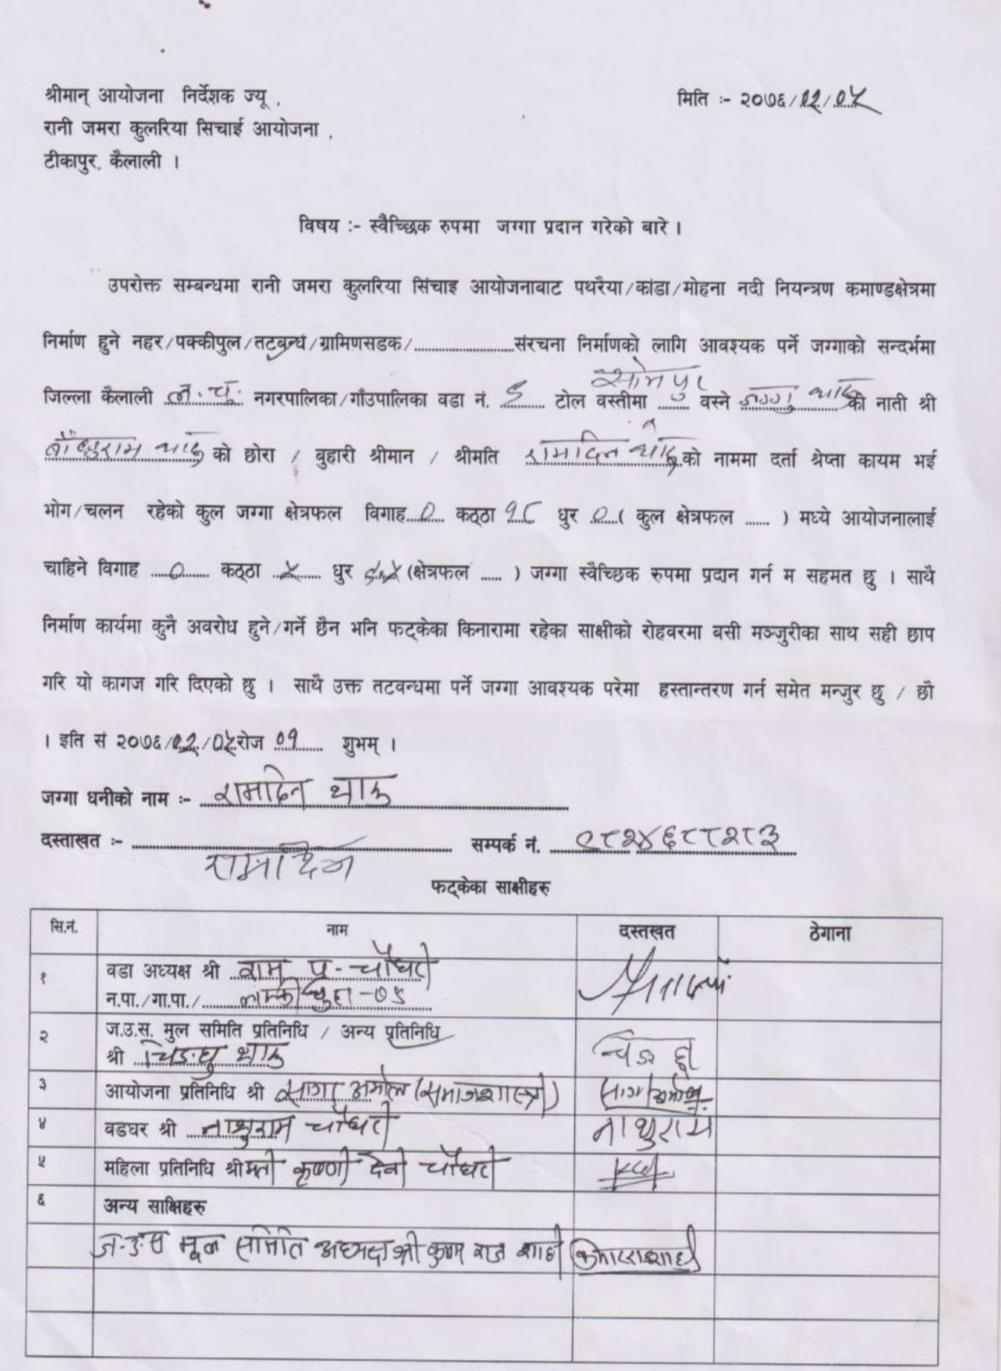 श्रीमान् आयोजना निर्देशक ज्यू ,
मिति :- २०७६/०२/०५
रानी जमरा कुलरिया सिचाई आयोजना ,
टीकापुर, कैलाली ।
विषय :- स्वैच्छिक रुपमा जग्गा प्रदान गरेको बारे ।
उपरोक्त सम्बन्धमा रानी जमरा कुलरिया सिंचाइ आयोजनाबाट पथरैया/कांडा/मोहना नदी नियन्त्रण कमाण्डक्षेत्रमा
निर्माण हुने नहर/पक्कीपुल/तटबन्ध/ग्रामिणसडक/....................संरचना निर्माणको लागि आवश्यक पर्ने जग्गाको सन्दर्भमा
जिल्ला कैलाली ल.चु. नगरपालिका/गाँउपालिका वडा नं. ५ टोल वस्तीमा वस्ने जग्गु थारु को नाती श्री
थारु को छोरा / बुहारी श्रीमान / श्रीमति रामादिन थारु को नाममा दर्ता श्रेष्ता कायम भई
भोग/चलन रहेको कुल जग्गा क्षेत्रफल विगाह ० कठ्ठा १८ धुर ० ( कुल क्षेत्रफल ...... ) मध्ये आयोजनालाई
चाहिने विगाह ० कठ्ठा × धुर (क्षेत्रफल ...... ) जग्गा स्वैच्छिक रुपमा प्रदान गर्न म सहमत छु । साथै
निर्माण कार्यमा कुनै अवरोध हुने/गर्ने छैन भनि फट्केका किनारामा रहेका साक्षीको रोहवरमा बसी मञ्जुरीका साथ सही छाप
गरि यो कागज गरि दिएको छु । साथै उक्त तटवन्धमा पर्ने जग्गा आवश्यक परेमा हस्तान्तरण गर्न समेत मन्जुर छु / छौ
। इति सं २०७६/०२/०५ रोज ०१ शुभम् ।
जग्गा धनीको नाम :- रामादिन थारु
दस्ताखत :- रामादिन सम्पर्क नं. ९८२४६८८२८३
फट्केका साक्षीहरु
सि.नं. नाम दस्तखत ठेगाना
१ वडा अध्यक्ष श्री राम प्र. चौधरी
न.पा./गा.पा./ लम्कीचुहा-०५
२ ज.उ.स. मुल समिति प्रतिनिधि / अन्य प्रतिनिधि
श्री थारु
३ आयोजना प्रतिनिधि श्री (समाजशास्त्री)
४ वडघर श्री नाथुराम चौधरी नाथुराम
५ महिला प्रतिनिधि श्रीमती कृष्णी देवी चौधरी
६ अन्य साक्षिहरु
ज.उ.स मूल समिति अध्यक्ष श्री कृष्ण राज शाही